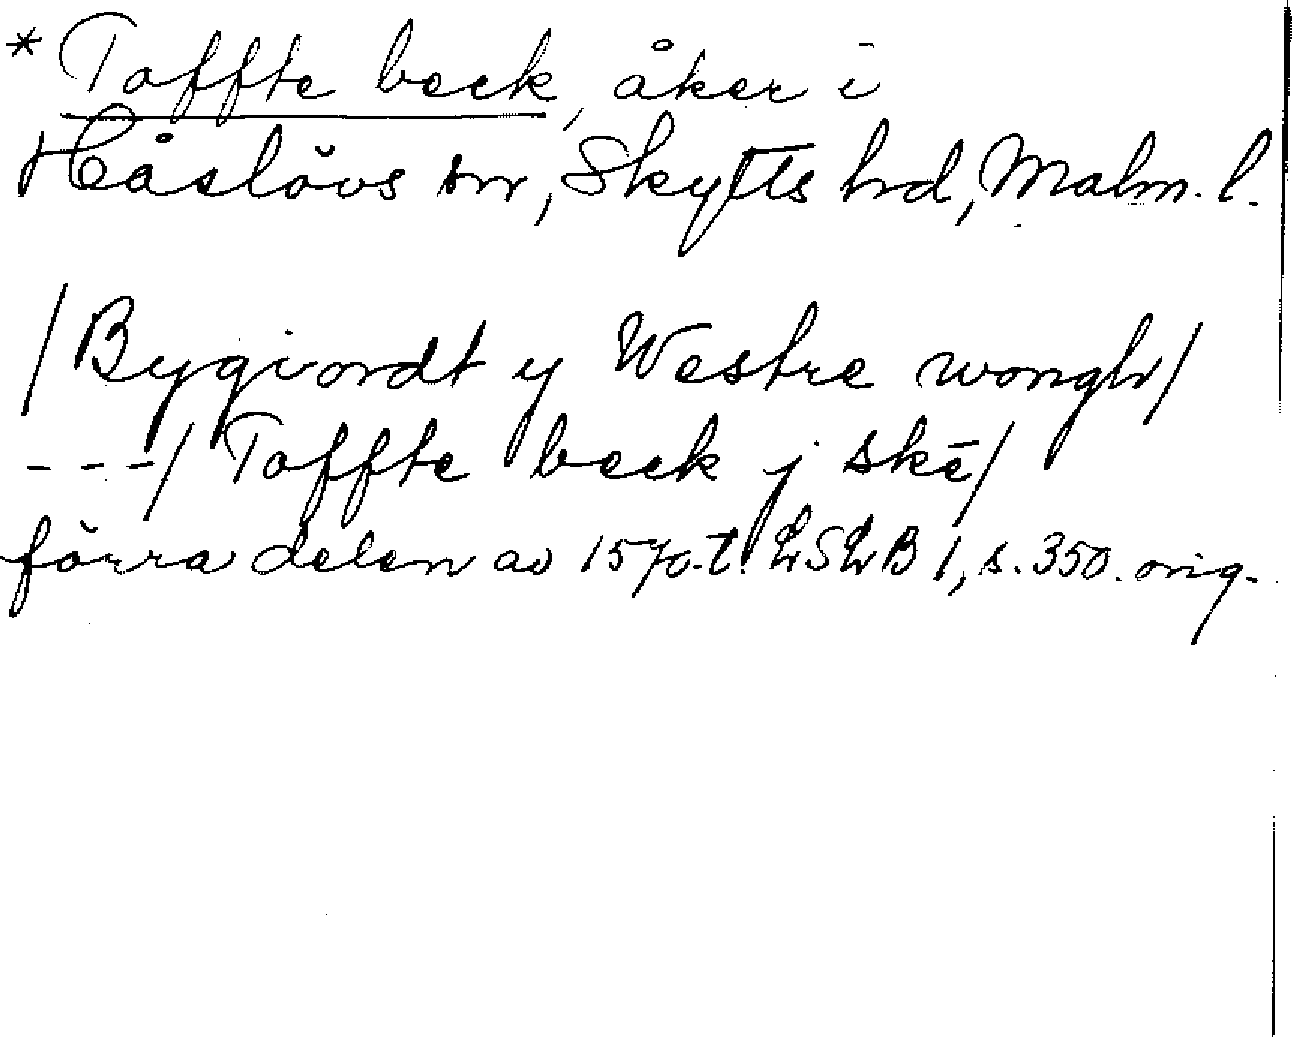 * Toffte beck, åker i
Håslövs sn, Skytts hrd, Malm. l.
/Bygiordt y Westre wongh/
---/ Toffte beck j skē/
förra delen av 1570-t. LSLB 1, s. 350. orig.